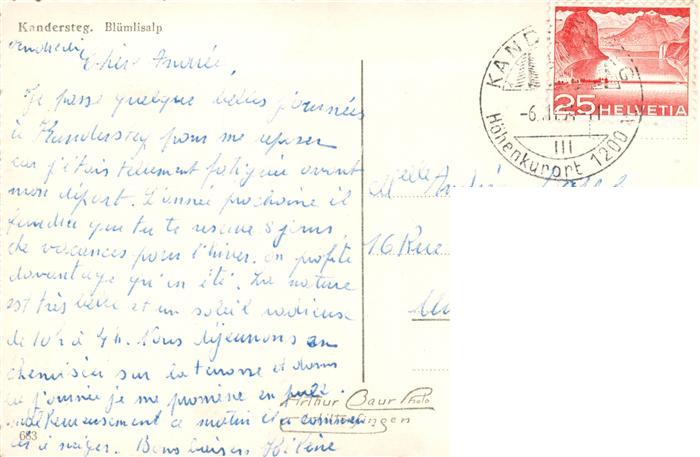 Kandersteg. Blümlisalp
Vendredi
Chère Andrée,
Je passe quelque belles journées
à Kandersteg pour me reposer
car j'étais tellement fatiguée avant
mon départ. L'année prochaine il
faudra que tu te réserve 8 jours
de vacances pour l'hiver. On profite
davantage qu'en été. La nature
est très belle et un soleil radieuse
de 10h à 4h. Nous déjeunons en
chemisier sur la terrasse et dans
la journée je me promène en pull.
Malheureusement ce matin il a commen
cer à neiger. Bons baisers Hélène
683
Arthur Baur Photo
KANDERSTEG
-6.
III
Höhenkurort 1200
25 HELVETIA
Melle Andrée
16 Rue